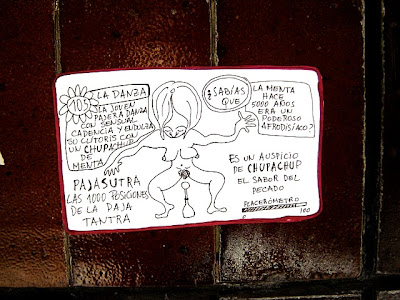 103
LA DANZA
LA JOVEN
PAJERA DANZA
CON SENSUAL
CADENCIA Y ENDULZA
SU CLITORIS CON
UN CHUPACHUP
DE
MENTA
PAJASUTRA
LAS 1000 POSICIONES
DE LA PAJA
TANTRA
¿SABÍAS
QUE
LA MENTA
HACE
5000 AÑOS
ERA UN
PODEROSO
AFRODISÍACO?
ES UN AUSPICIO
DE CHUPACHUP
EL SABOR DEL
PECADO
PLACERÓMETRO
100